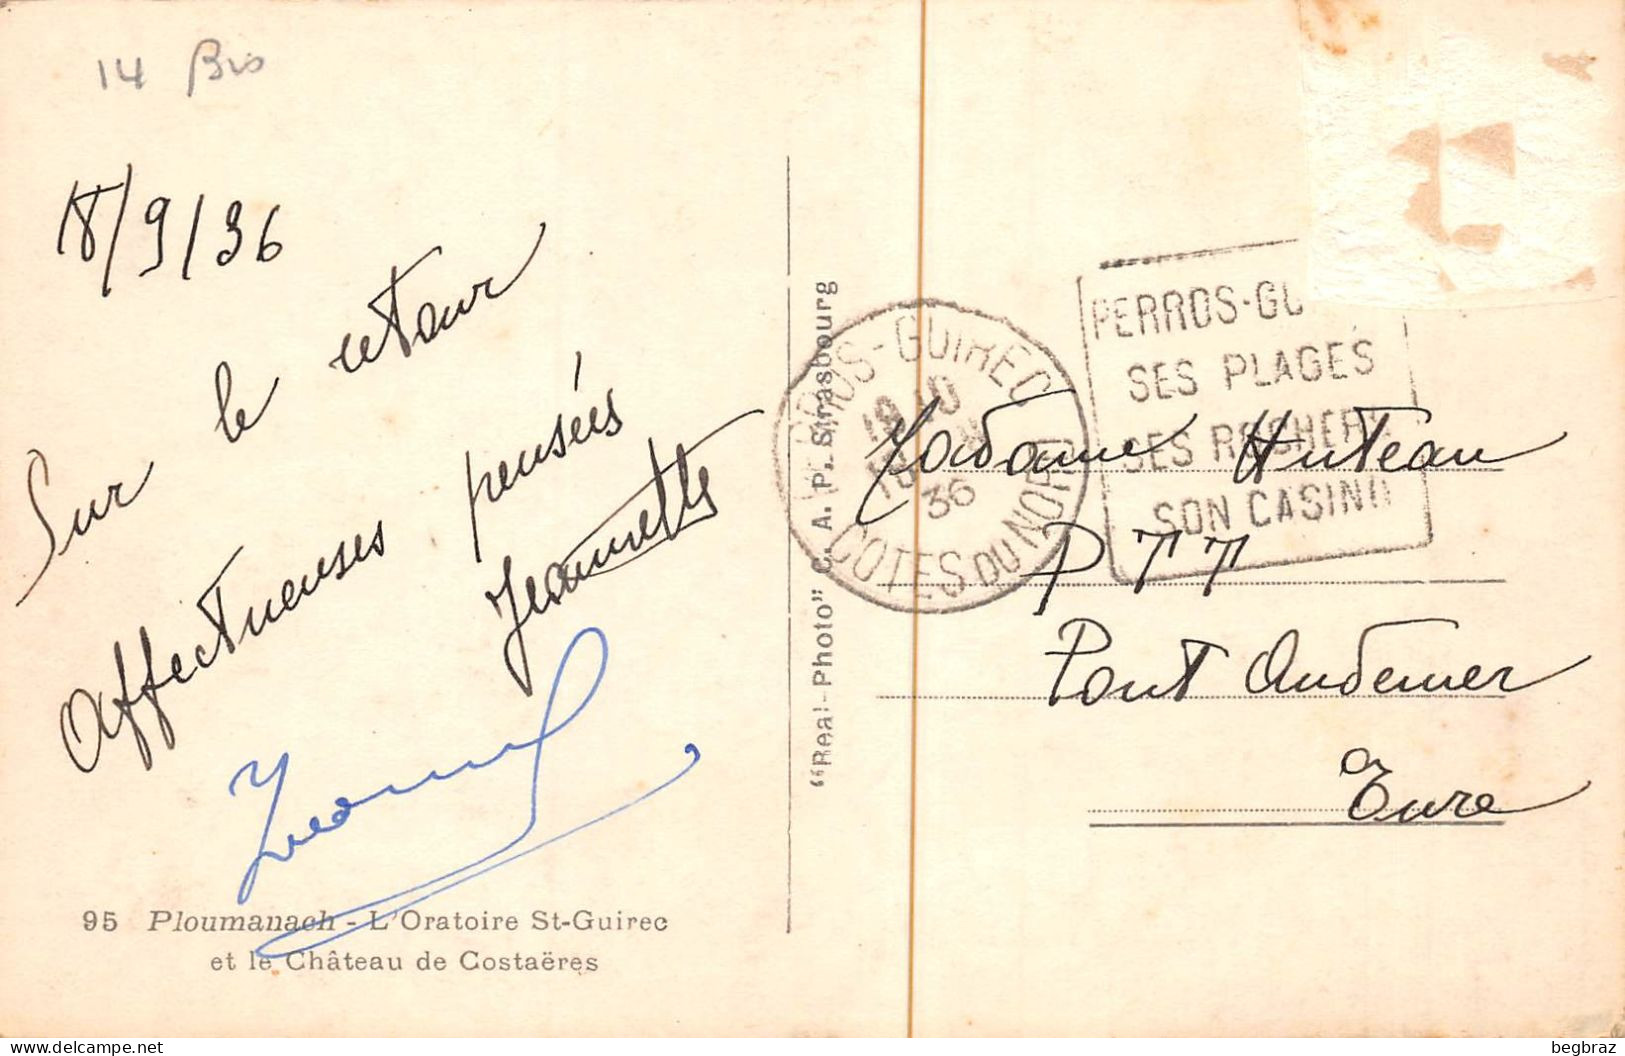 14 Bis
18/9/36
Sur le retour
Affectueuses pensées
Jeannette
95 Ploumanach - L'Oratoire St-Guirec
et le Château de Costaërès
"Real-Photo" C. A. P. Strasbourg
PERROS-GUIREC
19 10
18
36
COTES DU NORD
PERROS-GU
SES PLAGES
SES ROCHERS
SON CASINO
Madame Huteau
PTT
Pont Audemer
Eure
begbraz